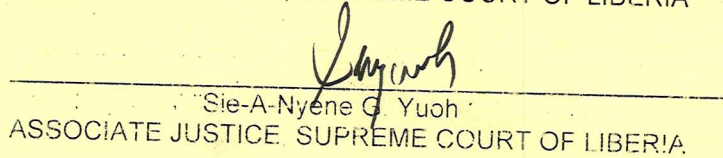 COURT OF LIBERIA
Sie-A-Nyene G. Yuoh
ASSOCIATE JUSTICE SUPREME COURT OF LIBERIA